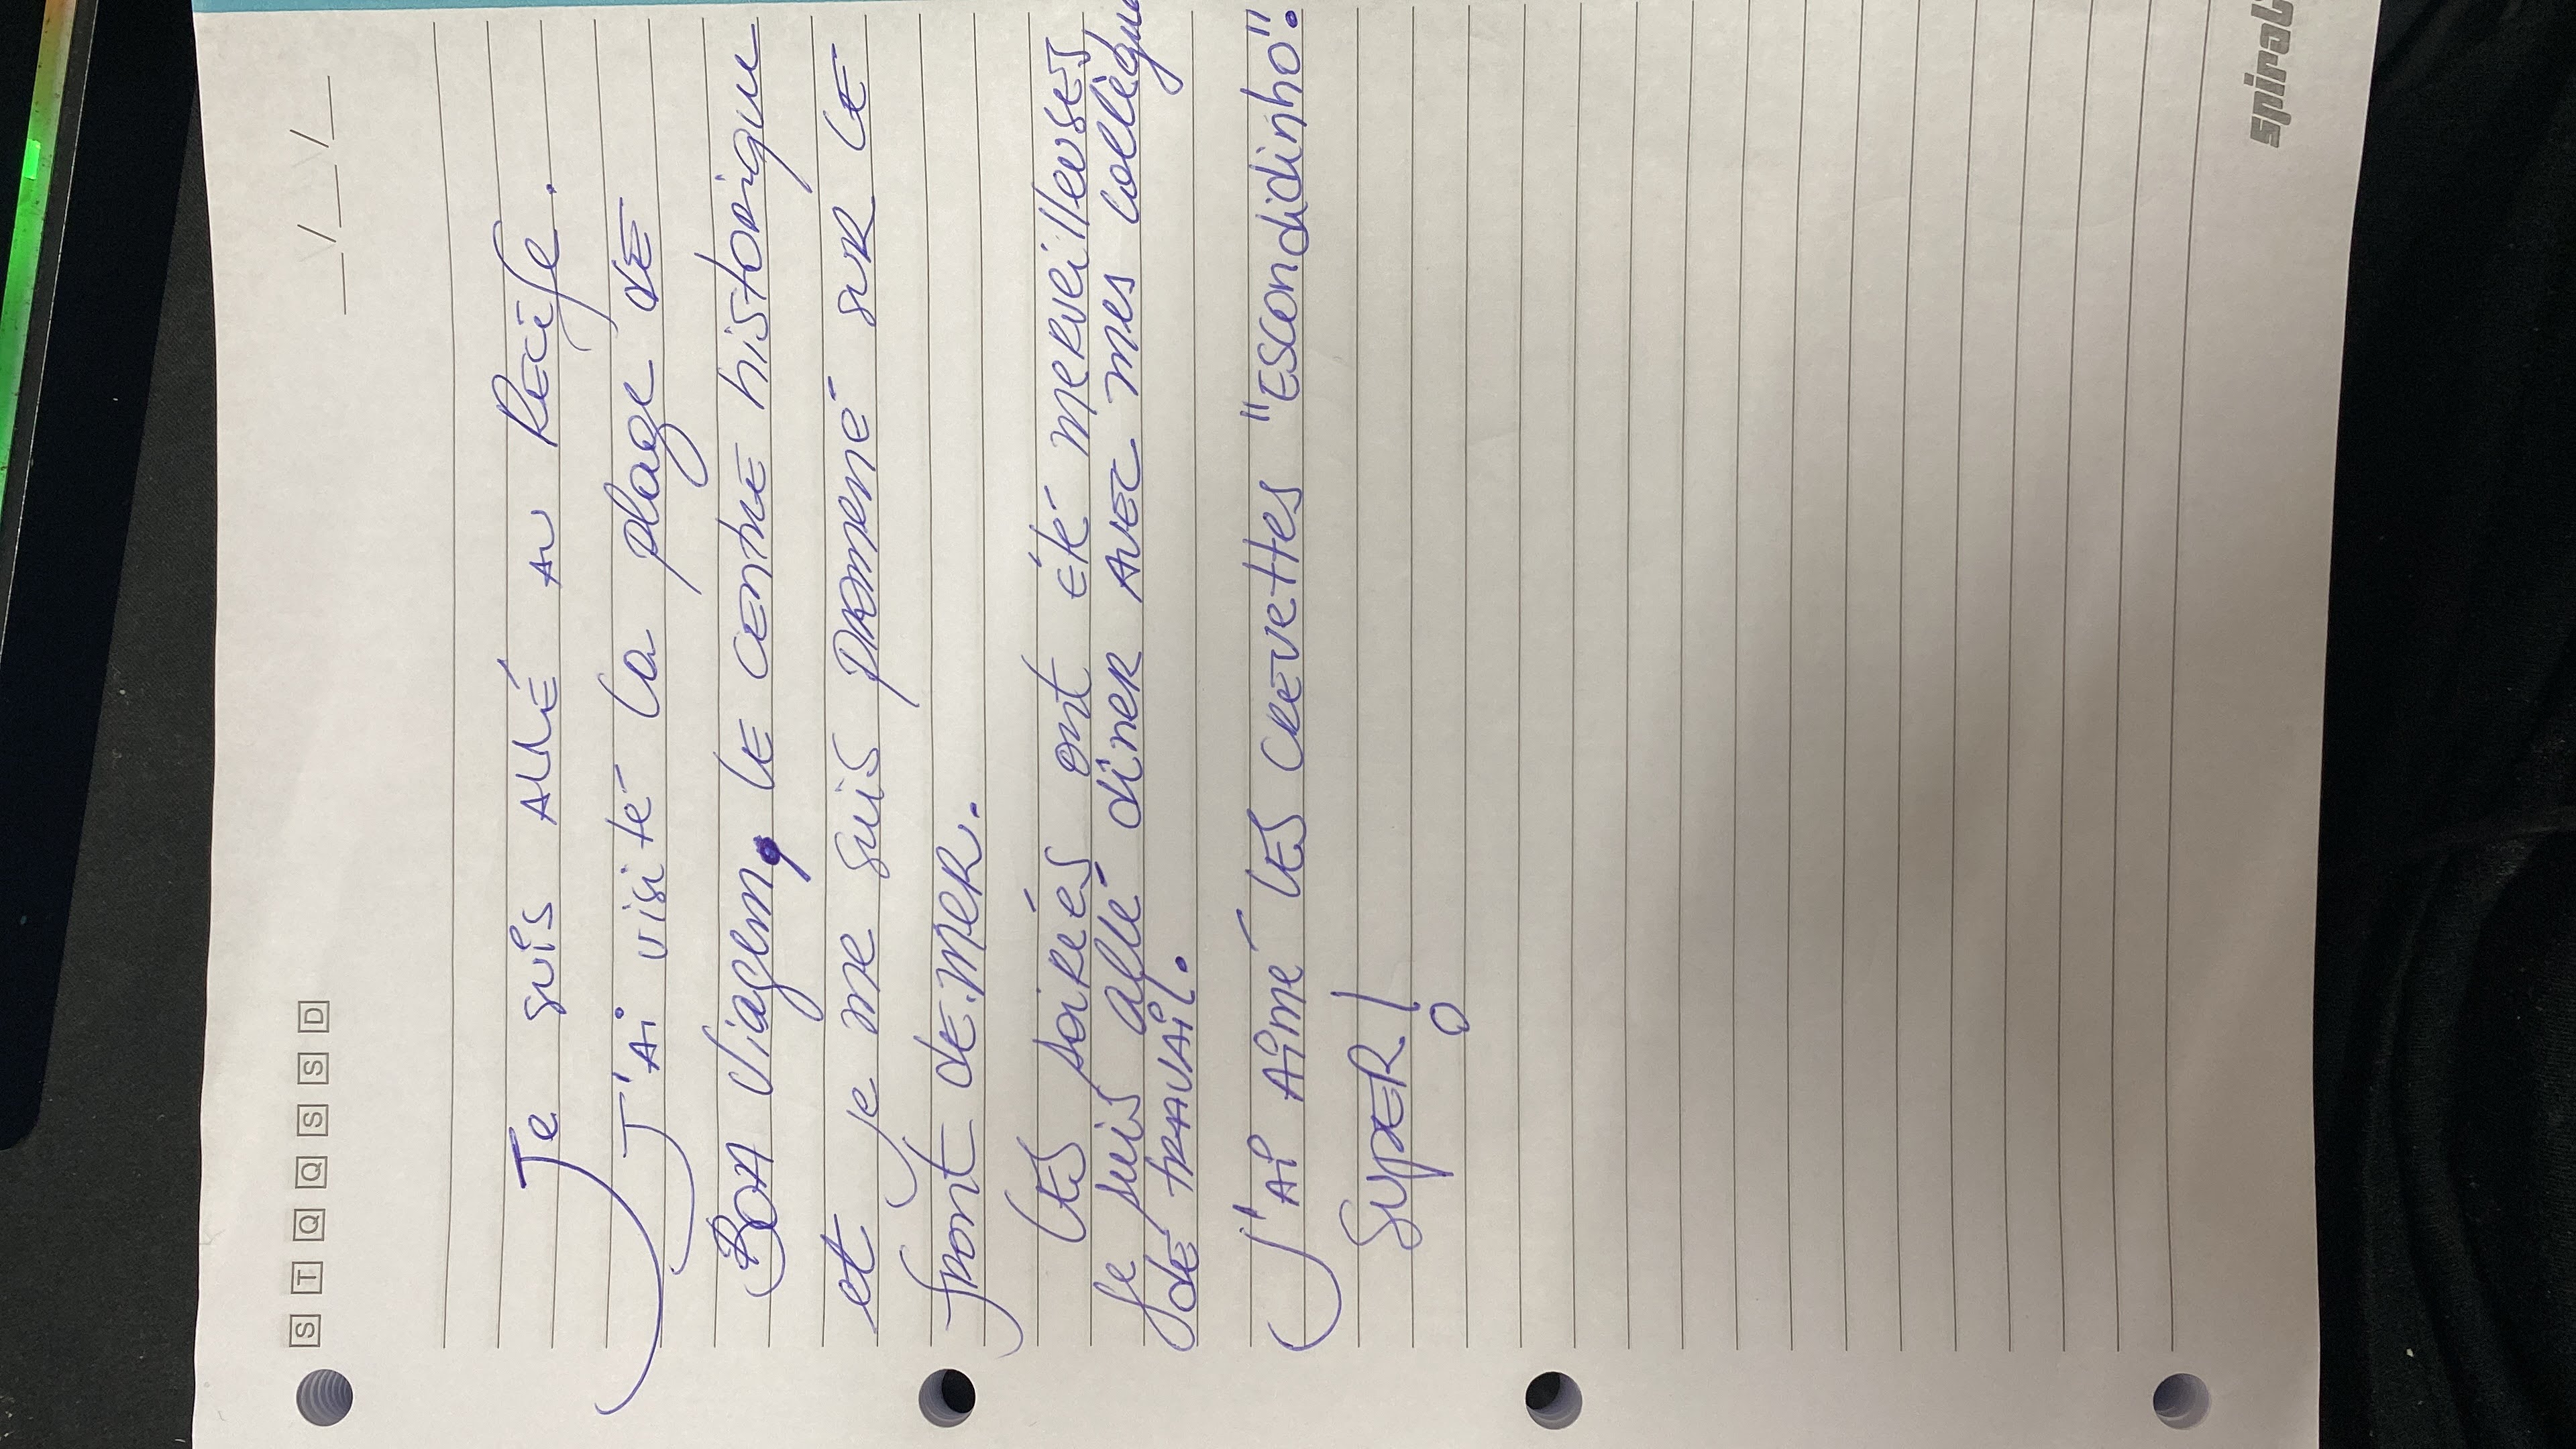 S T Q Q S S D
__/__/__
Je suis allé au Recife.
J'ai visité la plage de
Boa Viagem, le centre historique
et je me suis promené sur le
front de.mer.
Les soireés ont été merveilleuses,
je suis allé dîner avec mes collègue
de travail.
J'ai aimé les crevettes "Escondidinho".
Super!
spiral